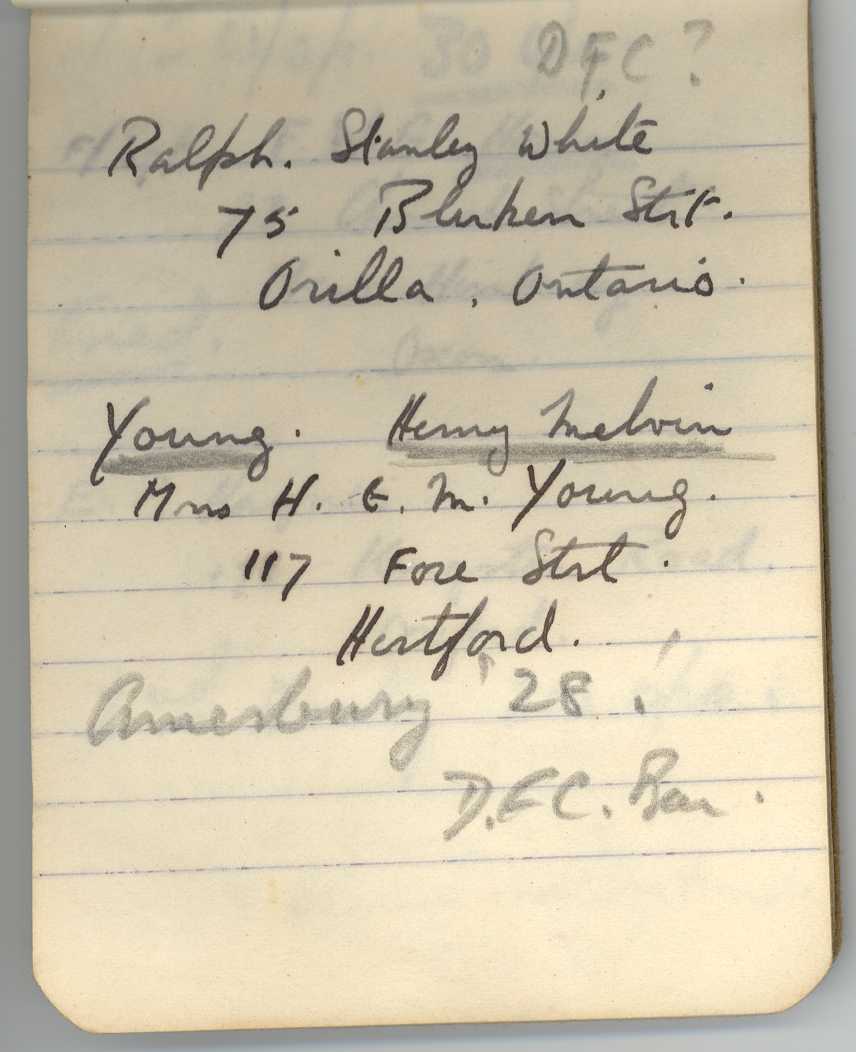 DFC?
Ralph. Stanley White
75 Blurken Strt.
Orilla, Ontario.
Young. Henry Melvin
Mrs H. E. M. Young.
117 Fore Strt.
Hertford.
Amesbury '28!
D.F.C. Bar.